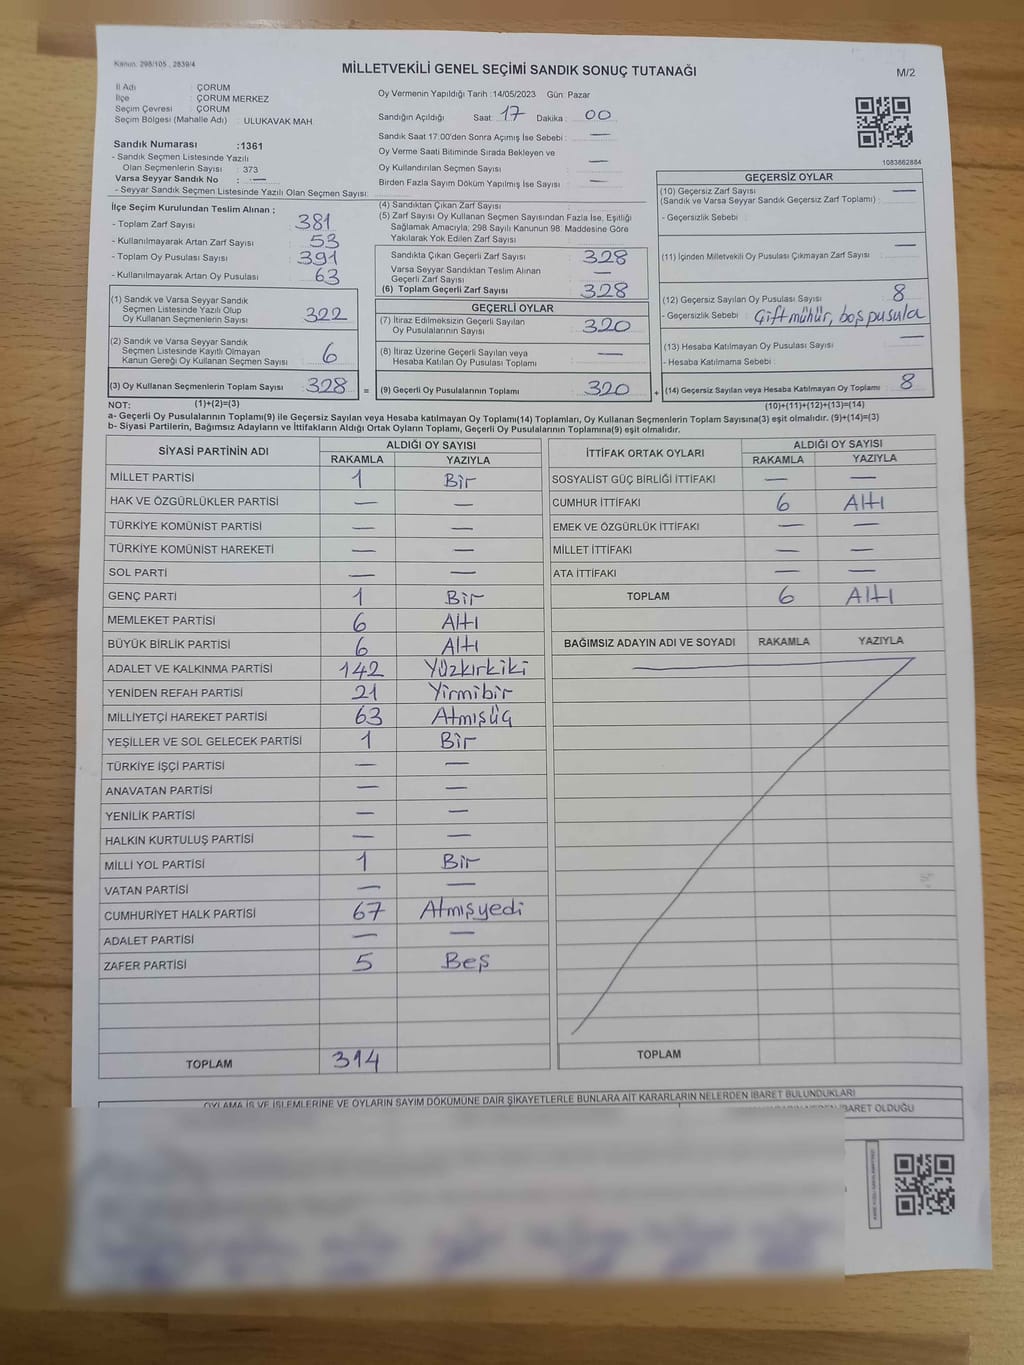 Kanun: 298/105 , 2839/4
MİLLETVEKİLİ GENEL SEÇİMİ SANDIK SONUÇ TUTANAĞI
M/2
İl Adı : ÇORUM
İlçe : ÇORUM MERKEZ
Seçim Çevresi : ÇORUM
Seçim Bölgesi (Mahalle Adı) : ULUKAVAK MAH.
Sandık Numarası :1361
- Sandık Seçmen Listesinde Yazılı
Olan Seçmenlerin Sayısı : 373
Varsa Seyyar Sandık No : —
- Seyyar Sandık Seçmen Listesinde Yazılı Olan Seçmen Sayısı:
Oy Vermenin Yapıldığı Tarih :14/05/2023 Gün: Pazar
Sandığın Açıldığı Saat: 17 Dakika : 00
Sandık Saat 17.00'den Sonra Açımış İse Sebebi : —
Oy Verme Saati Bitiminde Sırada Bekleyen ve
Oy Kullandırılan Seçmen Sayısı —
Birden Fazla Sayım Döküm Yapılmış İse Sayısı : —
1083862884
İlçe Seçim Kurulundan Teslim Alınan ;
- Toplam Zarf Sayısı 381
- Kullanılmayarak Artan Zarf Sayısı 53
- Toplam Oy Pusulası Sayısı 391
- Kullanılmayarak Artan Oy Pusulası 63
(1) Sandık ve Varsa Seyyar Sandık
Seçmen Listesinde Yazılı Olup
Oy Kullanan Seçmenlerin Sayısı 322
(2) Sandık ve Varsa Seyyar Sandık
Seçmen Listesinde Kayıtlı Olmayan
Kanun Gereği Oy Kullanan Seçmen Sayısı 6
(3) Oy Kullanan Seçmenlerin Toplam Sayısı 328 =
(4) Sandıktan Çıkan Zarf Sayısı
(5) Zarf Sayısı Oy Kullanan Seçmen Sayısından Fazla İse, Eşitliği
Sağlamak Amacıyla; 298 Sayılı Kanunun 98. Maddesine Göre
Yakılarak Yok Edilen Zarf Sayısı
Sandıkta Çıkan Geçerli Zarf Sayısı 328
Varsa Seyyar Sandıktan Teslim Alınan
Geçerli Zarf Sayısı —
(6) Toplam Geçerli Zarf Sayısı 328
GEÇERLİ OYLAR
(7) İtiraz Edilmeksizin Geçerli Sayılan
Oy Pusulalarının Sayısı 320
(8) İtiraz Üzerine Geçerli Sayılan veya
Hesaba Katılan Oy Pusulası Toplamı —
(9) Geçerli Oy Pusulalarının Toplamı 320 +
GEÇERSİZ OYLAR
(10) Geçersiz Zarf Sayısı —
(Sandık ve Varsa Seyyar Sandık Geçersiz Zarf Toplamı) :
- Geçersizlik Sebebi :
—
(11) İçinden Milletvekili Oy Pusulası Çıkmayan Zarf Sayısı
(12) Geçersiz Sayılan Oy Pusulası Sayısı 8
- Geçersizlik Sebebi : Çift mühür, boş pusula
(13) Hesaba Katılmayan Oy Pusulası Sayısı —
- Hesaba Katılmama Sebebi :
(14) Geçersiz Sayılan veya Hesaba Katılmayan Oy Toplamı 8
NOT: (1)+(2)=(3) (10)+(11)+(12)+(13)=(14)
a- Geçerli Oy Pusulalarının Toplamı(9) ile Geçersiz Sayılan veya Hesaba katılmayan Oy Toplamı(14) Toplamları, Oy Kullanan Seçmenlerin Toplam Sayısına(3) eşit olmalıdır. (9)+(14)=(3)
b- Siyasi Partilerin, Bağımsız Adayların ve İttifakların Aldığı Ortak Oyların Toplamı, Geçerli Oy Pusulalarının Toplamına(9) eşit olmalıdır.
SİYASİ PARTİNİN ADI ALDIĞI OY SAYISI
RAKAMLA YAZIYLA
MİLLET PARTİSİ 1 Bir
HAK VE ÖZGÜRLÜKLER PARTİSİ — —
TÜRKİYE KOMÜNİST PARTİSİ — —
TÜRKİYE KOMÜNİST HAREKETİ — —
SOL PARTİ — —
GENÇ PARTİ 1 Bir
MEMLEKET PARTİSİ 6 Altı
BÜYÜK BİRLİK PARTİSİ 6 Altı
ADALET VE KALKINMA PARTİSİ 142 Yüzkırkiki
YENİDEN REFAH PARTİSİ 21 Yirmibir
MİLLİYETÇİ HAREKET PARTİSİ 63 Atmışüç
YEŞİLLER VE SOL GELECEK PARTİSİ 1 Bir
TÜRKİYE İŞÇİ PARTİSİ — —
ANAVATAN PARTİSİ — —
YENİLİK PARTİSİ — —
HALKIN KURTULUŞ PARTİSİ — —
MİLLİ YOL PARTİSİ 1 Bir
VATAN PARTİSİ — —
CUMHURİYET HALK PARTİSİ 67 Atmışyedi
ADALET PARTİSİ — —
ZAFER PARTİSİ 5 Beş
TOPLAM 314
İTTİFAK ORTAK OYLARI ALDIĞI OY SAYISI
RAKAMLA YAZIYLA
SOSYALİST GÜÇ BİRLİĞİ İTTİFAKI — —
CUMHUR İTTİFAKI 6 Altı
EMEK VE ÖZGÜRLÜK İTTİFAKI — —
MİLLET İTTİFAKI — —
ATA İTTİFAKI — —
TOPLAM 6 Altı
BAĞIMSIZ ADAYIN ADI VE SOYADI RAKAMLA YAZIYLA
TOPLAM
OYLAMA İŞ VE İŞLEMLERİNE VE OYLARIN SAYIM DÖKÜMÜNE DAİR ŞİKAYETLERLE BUNLARA AİT KARARLARIN NELERDEN İBARET BULUNDUKLARI
İBARET OLDUĞU